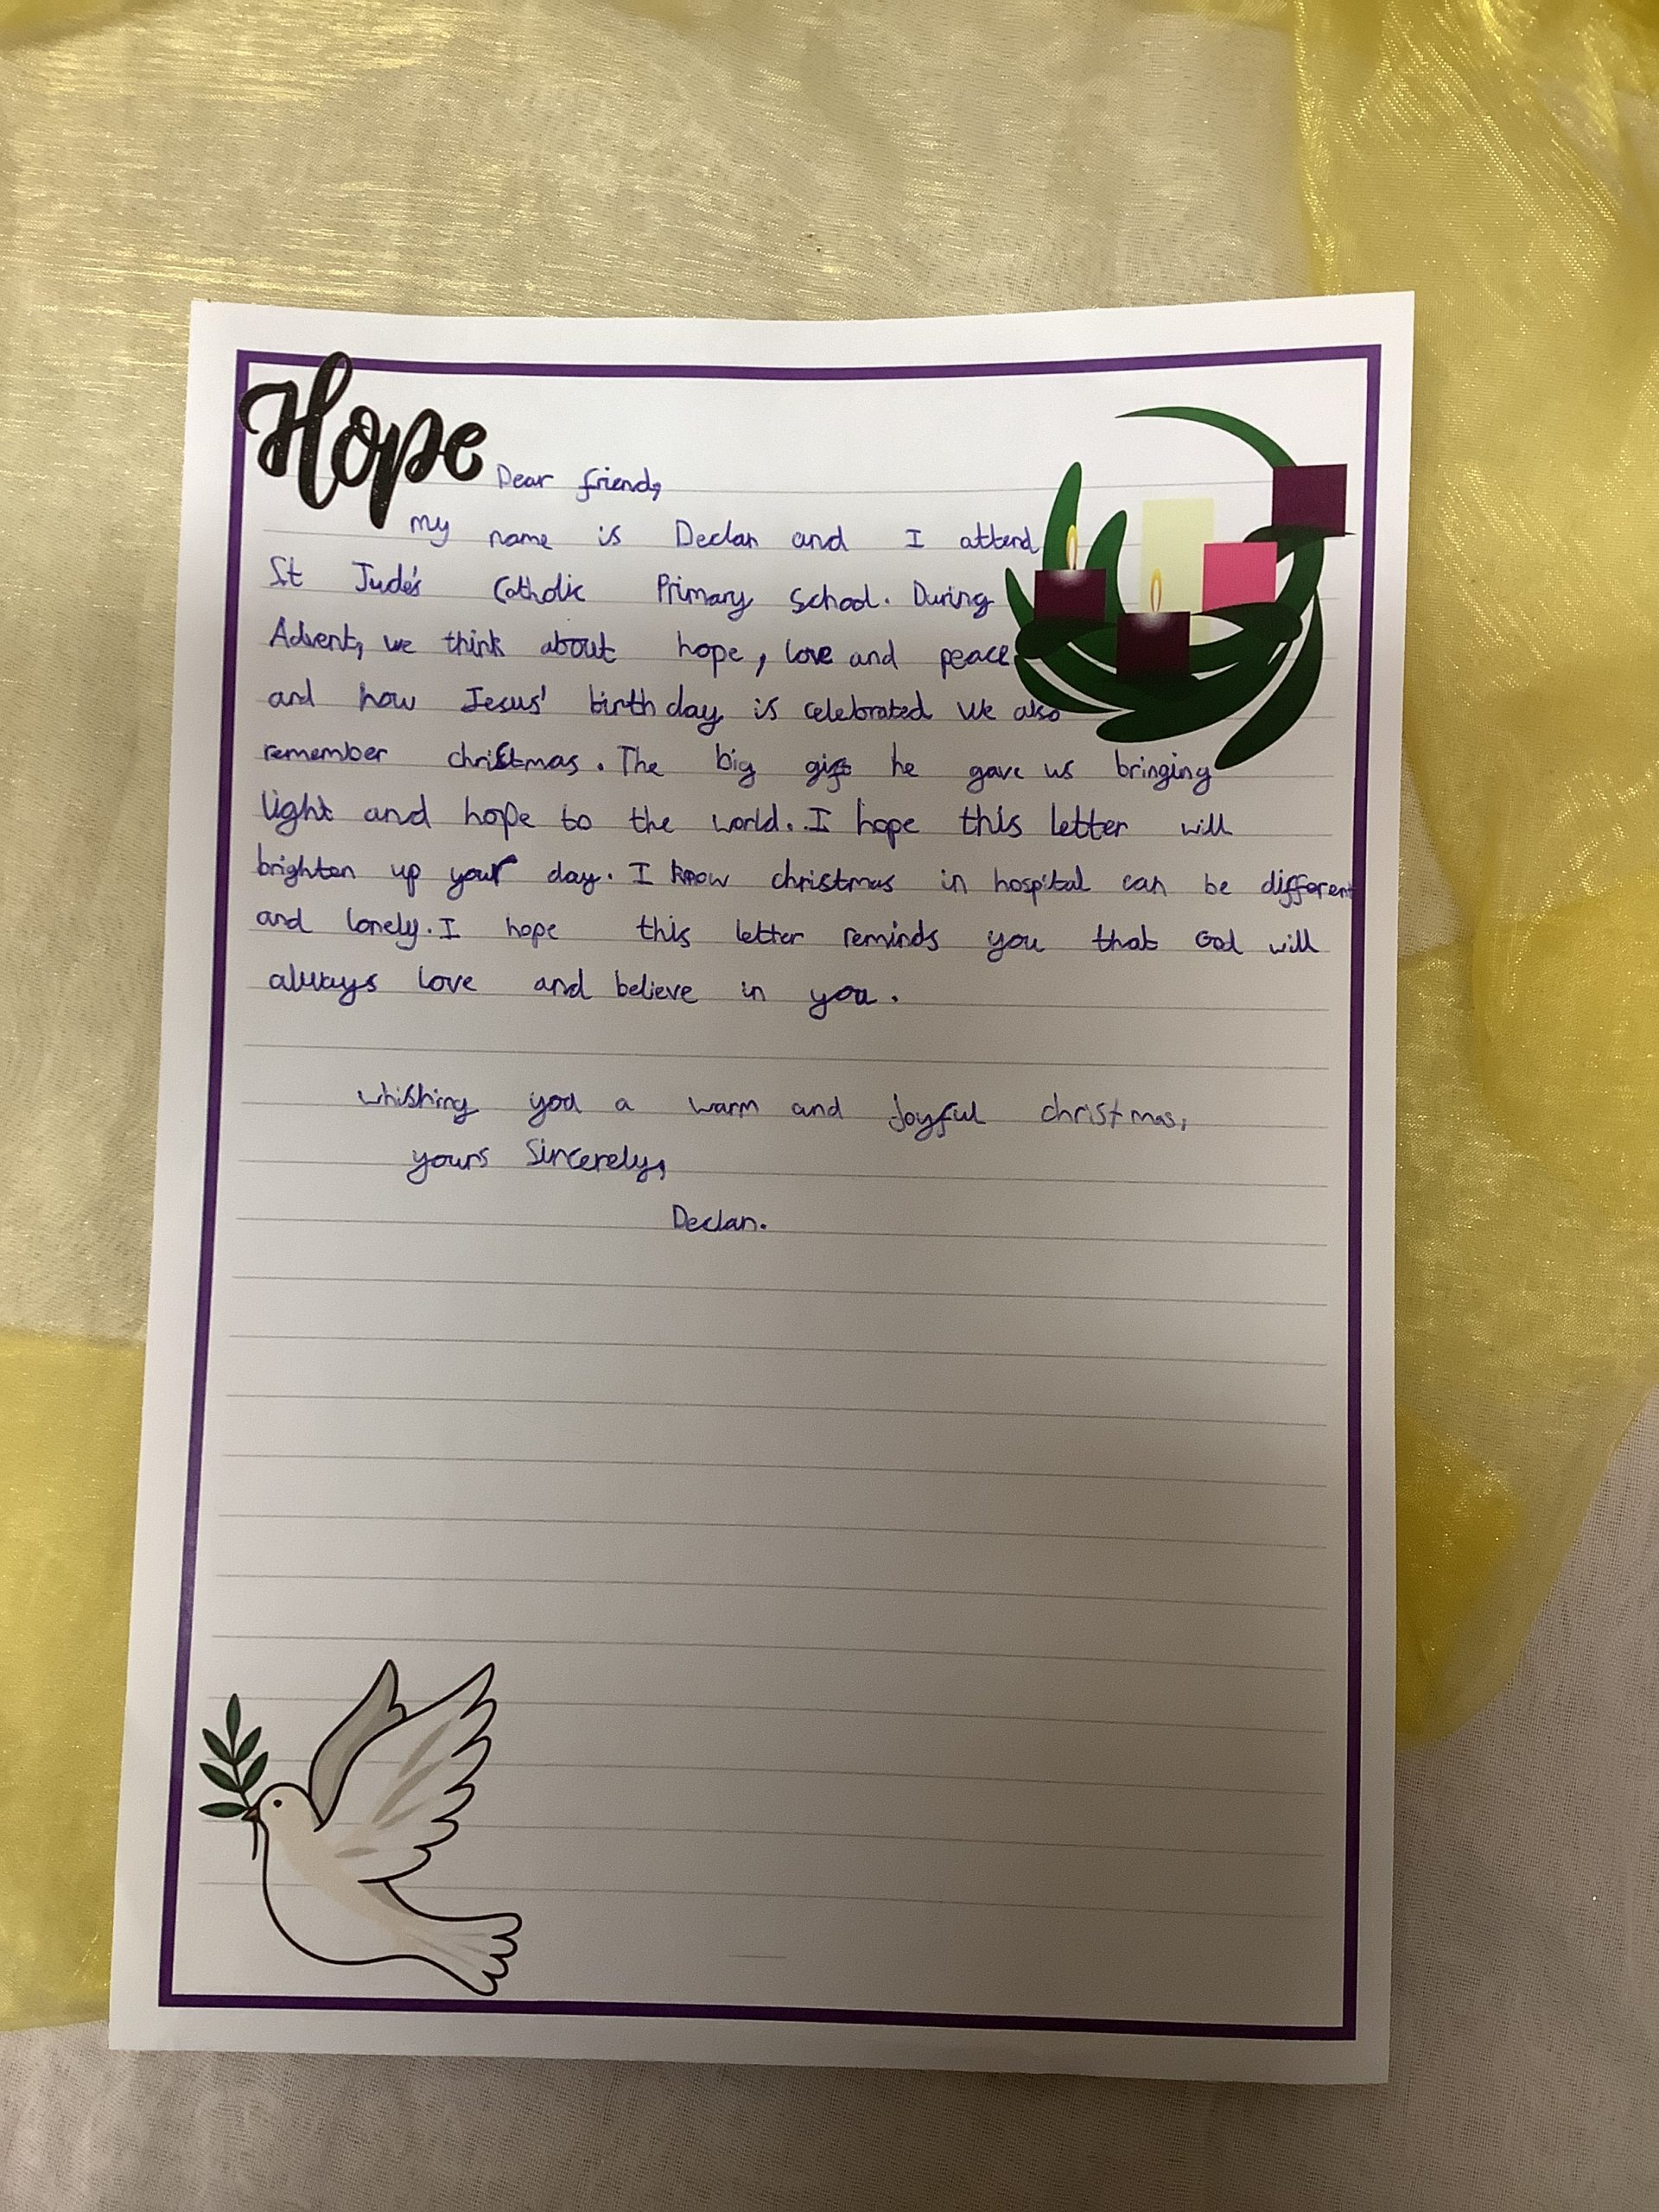 Hope
Dear friend,
my name is Declan and I attend
St Jude's Catholic Primary School. During
Advent, we think about hope, love and peace
and how Jesus' birthday is celebrated We also
remember christmas. The big gift he gave us bringing
light and hope to the world. I hope this letter will
brighten up your day. I know christmas in hospital can be different
and lonely. I hope this letter reminds you that God will
always love and believe in you.
whishing you a warm and joyful christmas,
yours Sincerely,
Declan.